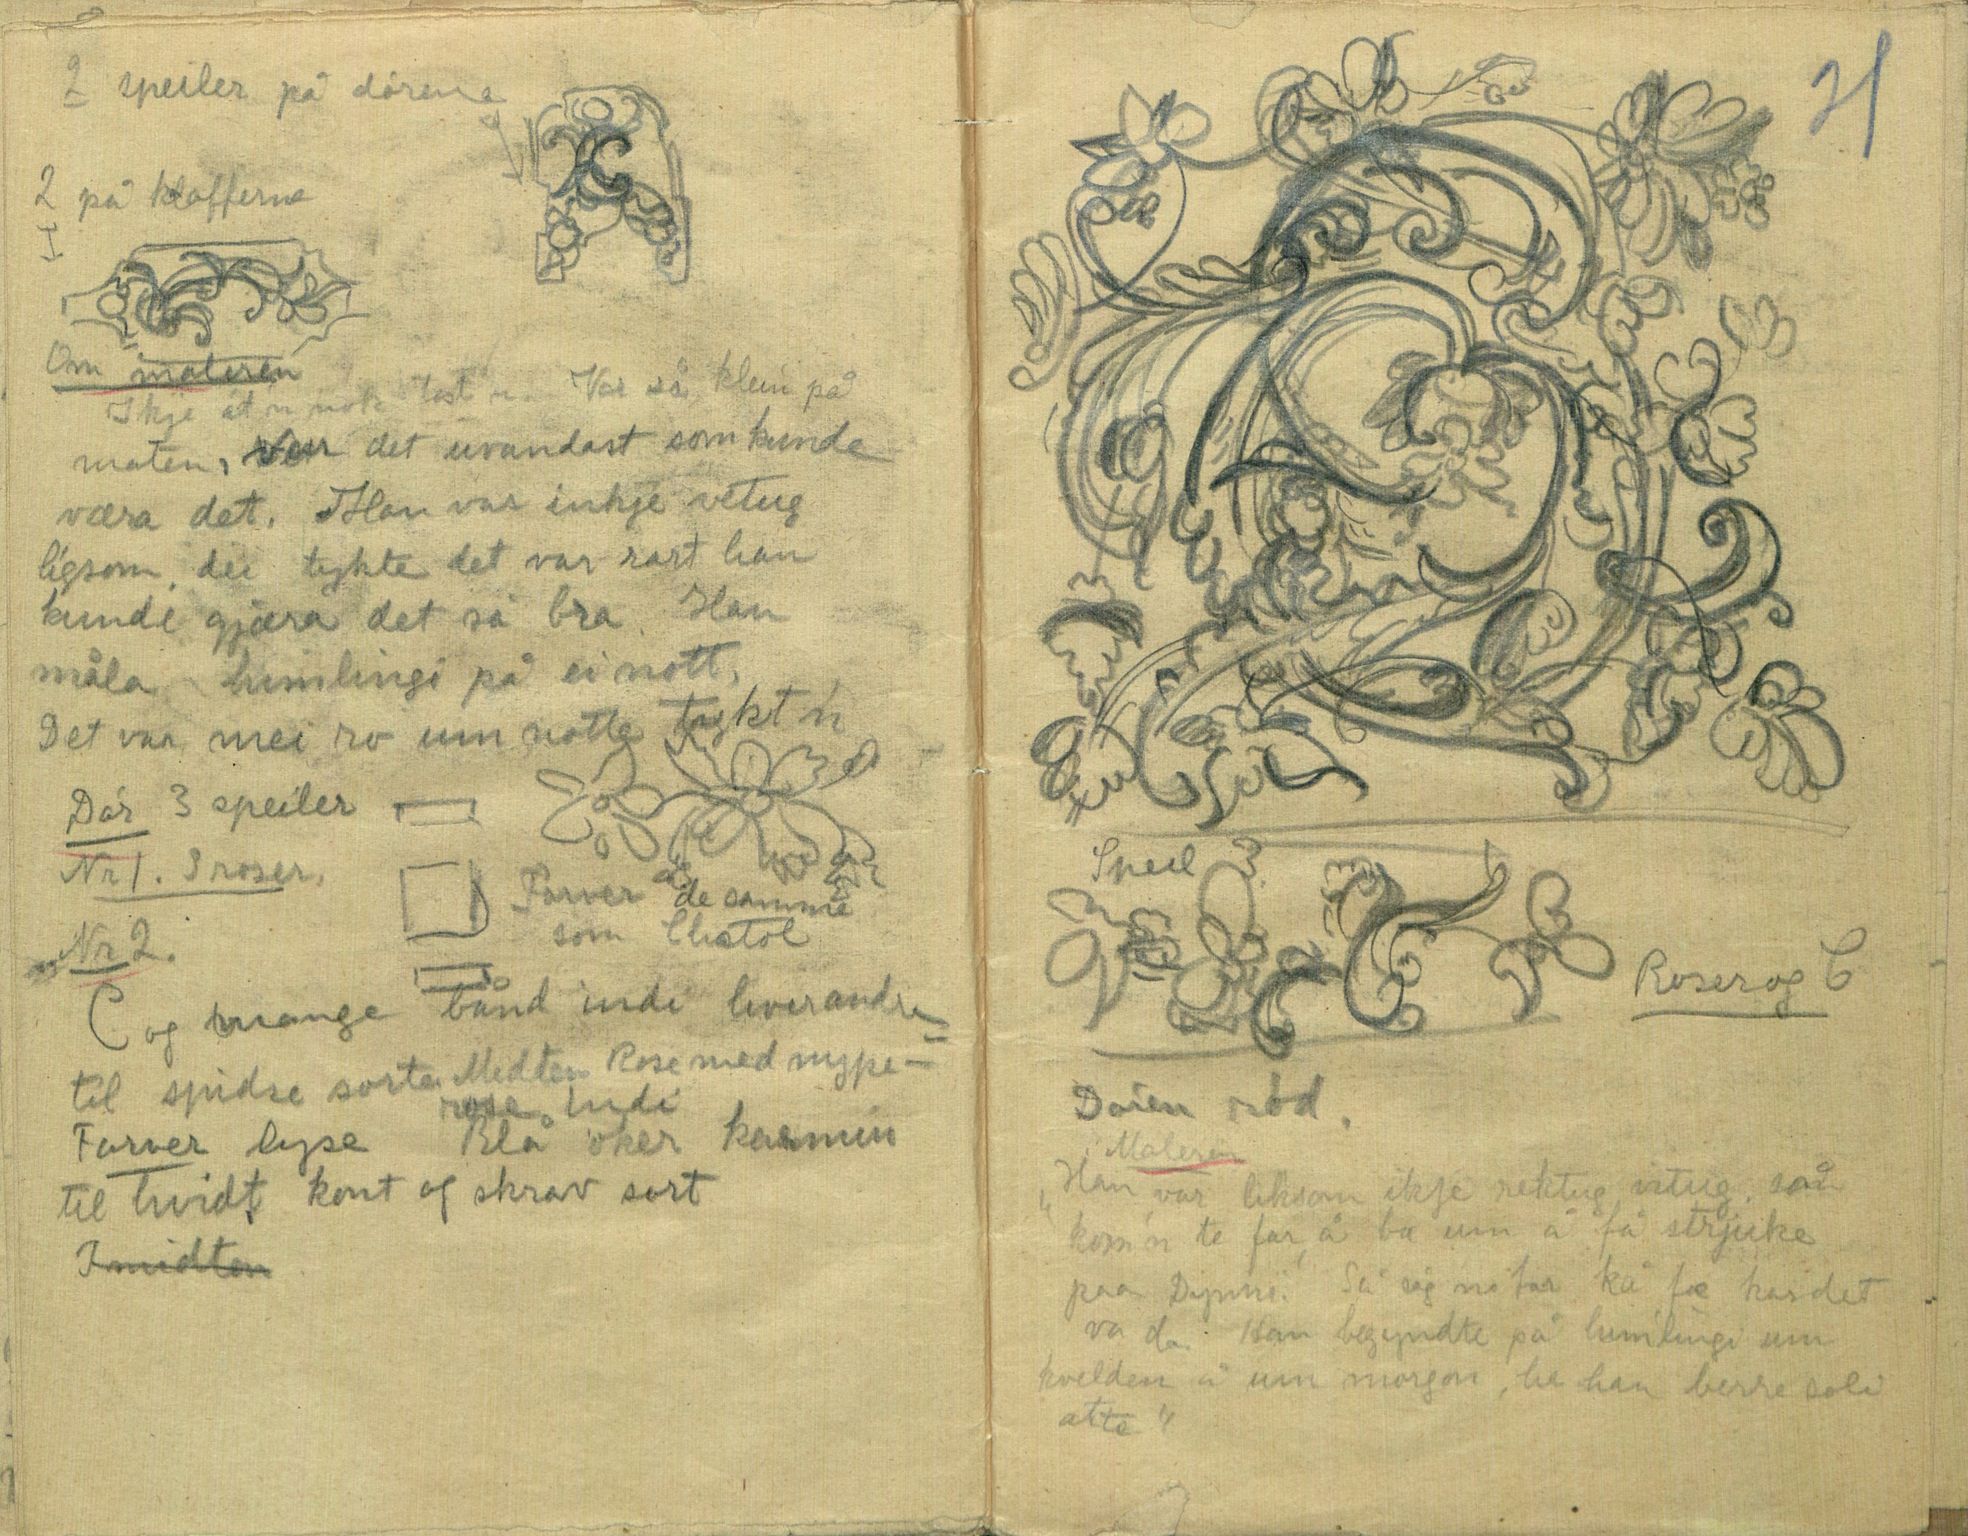 2 speiler på dørene
2 på klafferne
I
Om maleren
Ikje åt n nok Var så klein på
maten, Var det uvandast som kunde
væra det. Han var inkje vetug
ligsom, dei tykte det var rart han
kunde gjæra det så bra. Han
måla himlingi på ei nott,
Det var mei ro um notte tykt'n
Dør 3 speiler
Nr 1. 3 roser.
Farver de samme
som
Nr 2.
C og mange bånd indi hverandre
til spidse sorte Midten Rose med nype-
rose indi
Farver lyse Blå oker karmin
til hvidt, kont og skrav sort
Imidten
21
Speil 3
Roser og C
Døren rød.
Maleren
"Han var liksom ikje rektug vitug, så
kom'n te far, å ba um å få strjuke
paa Dynni. Så såg no far ka fæ kar det
va da. Han begyndte på himlingi um
kvelden å um morgon, he han berre soli
atte"